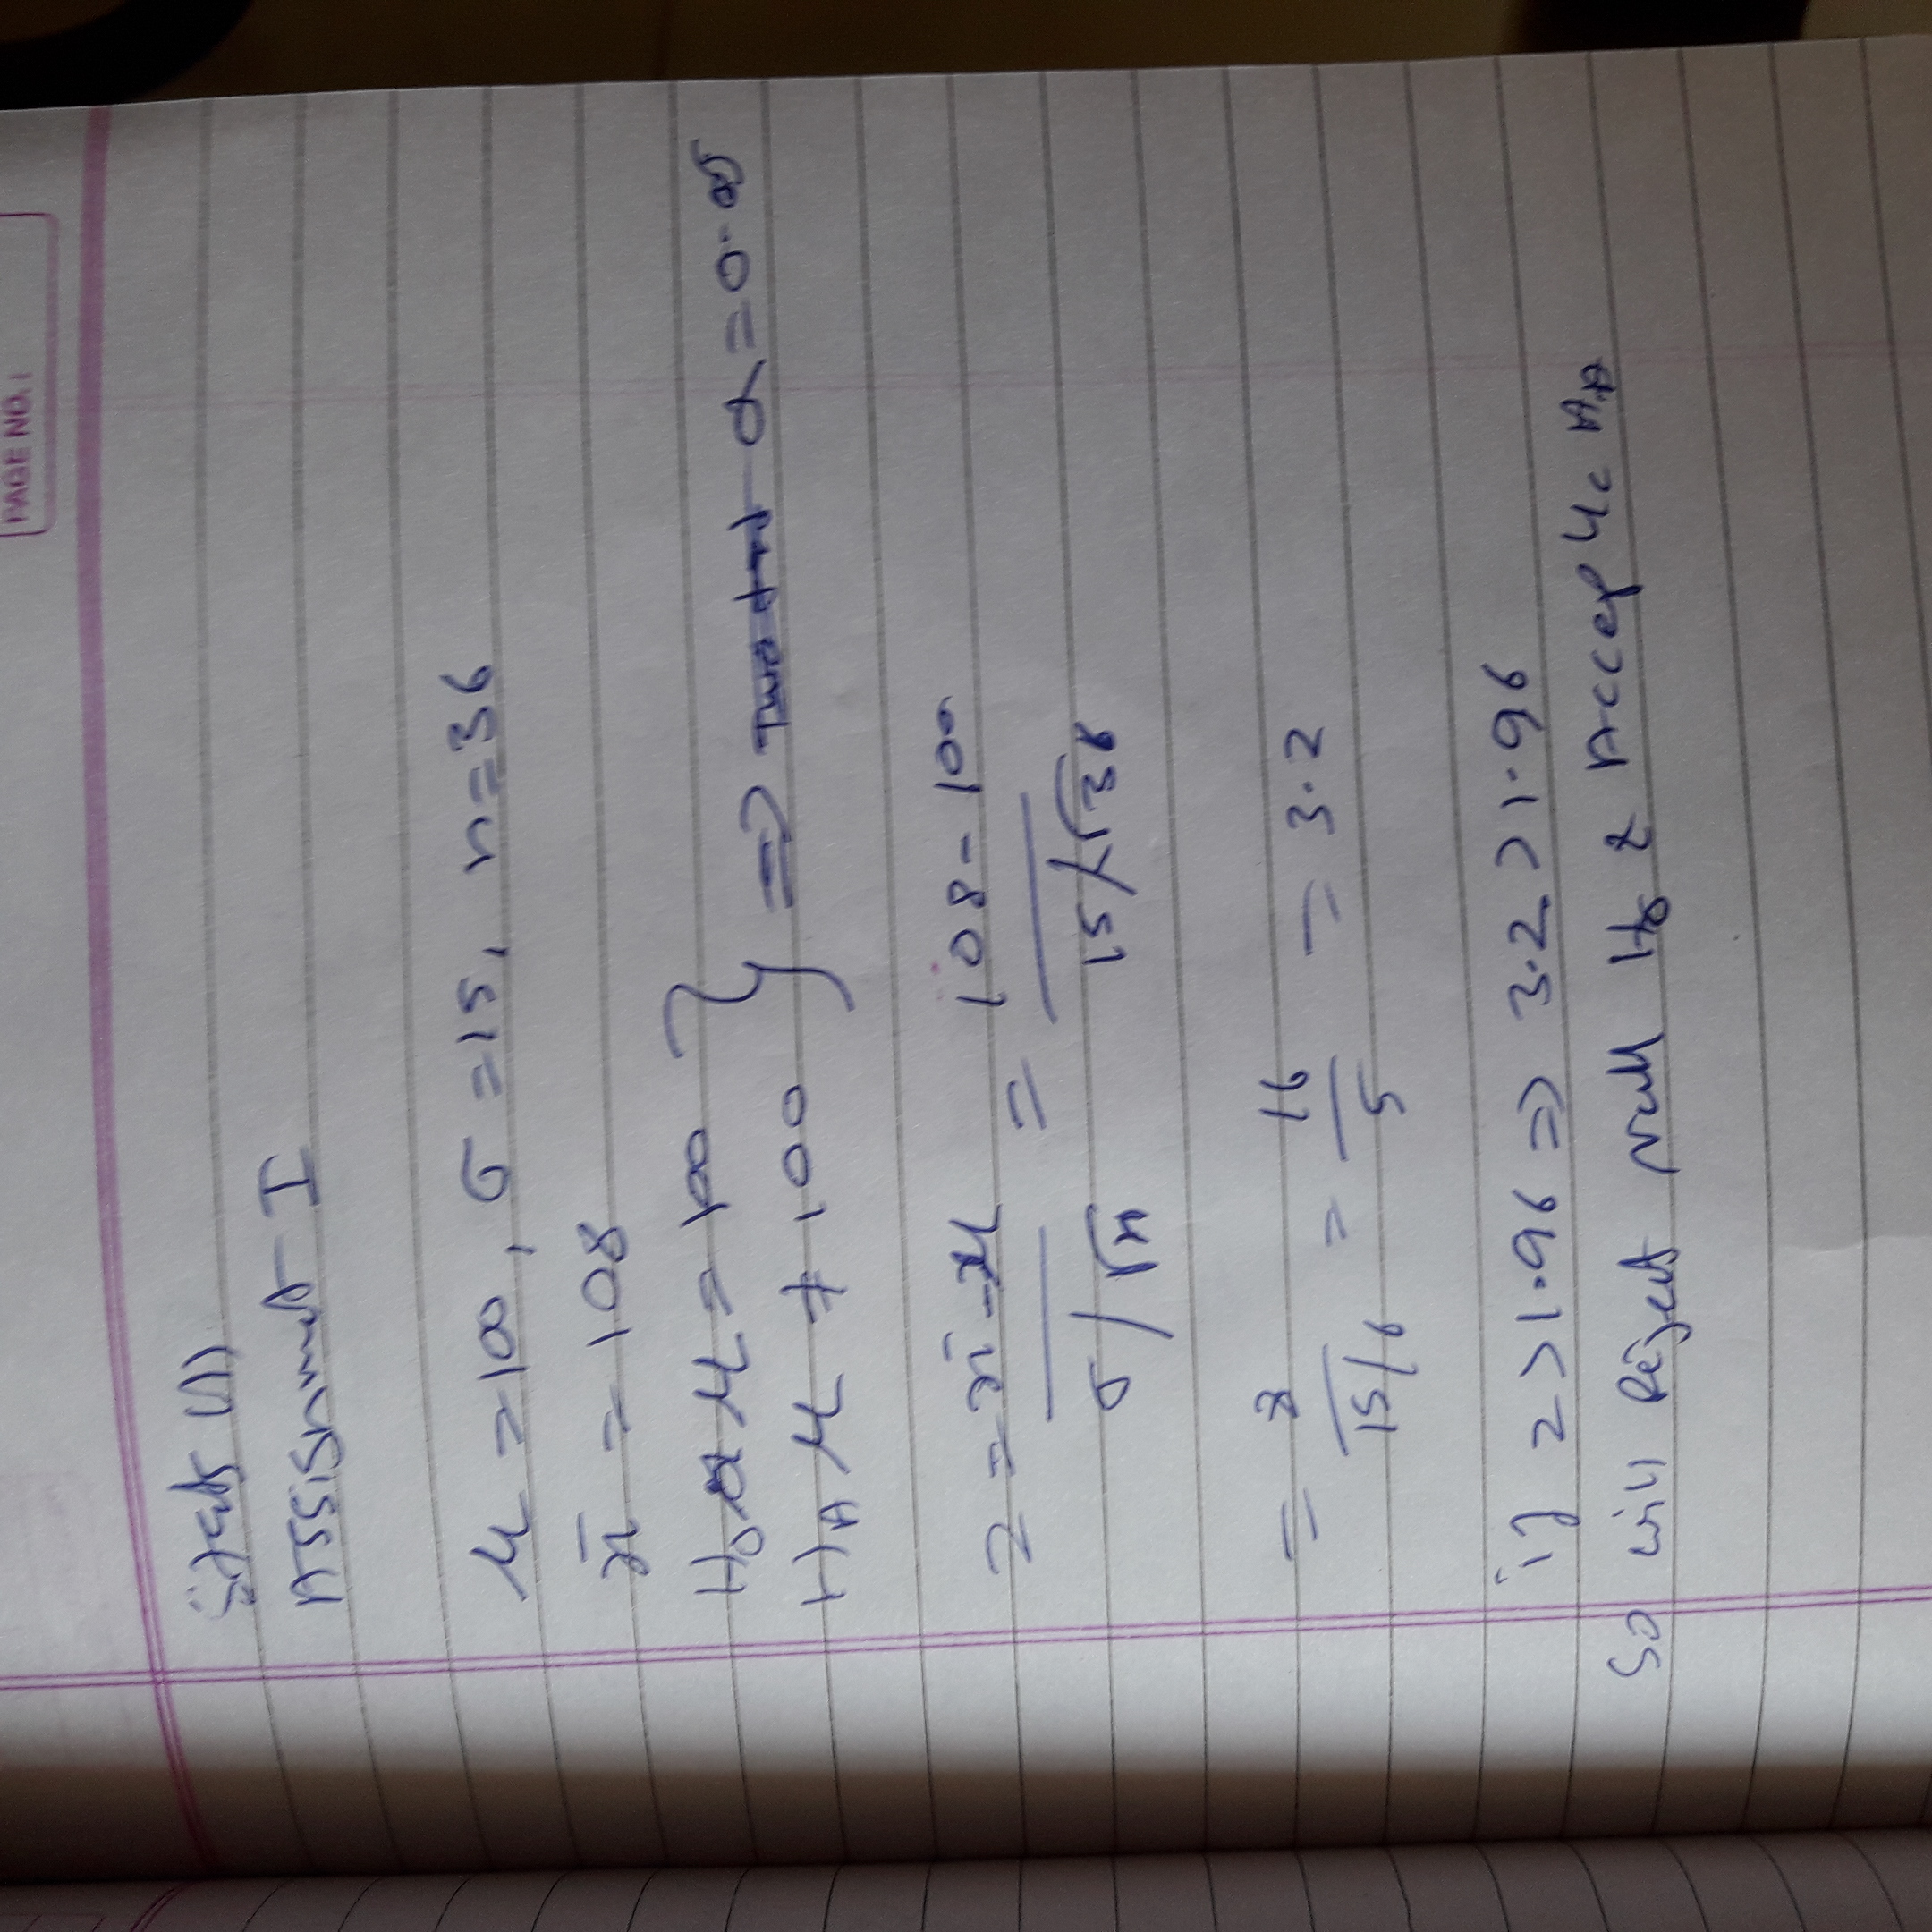 PAGE NO. :
Stats (1)
Assignment I
μ = 100, σ = 15, n = 36
x̄ = 108
H₀ μ = 100
Hₐ μ ≠ 100 } => α = 0.05
z = x̄ - μ / σ/√n = 108 - 100 / 15/√36
= 8 / 15/6 = 16 / 5 = 3.2
if z > 1.96 => 3.2 > 1.96
So will Reject null H₀ & Accept Hₐ